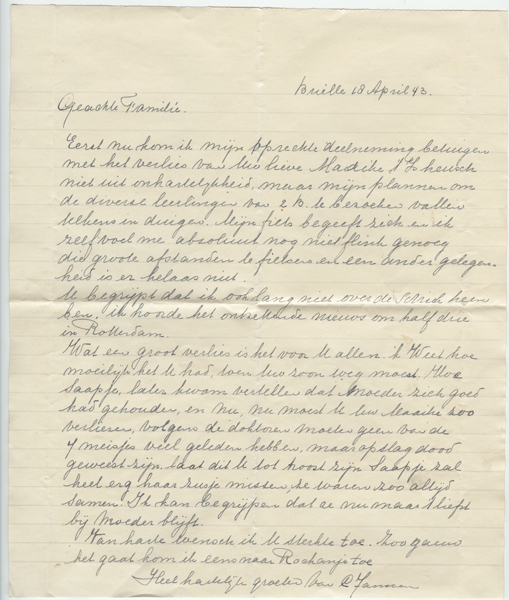 Brielle 18 April 43.
Geachte Familie.
Eerst nu kom ik mijn oprechte deelneming betuigen
met het verlies van Uw lieve Maatike 't Is heusch
niet uit onhartelijkheid, maar mijn plannen om
de diverse leerlingen van 2 B. te bezoeken vallen
telkens in duigen. Mijn fiets begeeft zich en ik
zelf voel me absoluut nog niet flink genoeg
die groote afstanden te fietsen en een ander gelegen-
heid is er helaas niet.
U begrijpt dat ik ook lang niet over de schrik heen
ben, ik hoorde het ontzettende nieuws om half drie
in Rotterdam.
Wat een groot verlies is het voor U allen. ik Weet hoe
moeilijk het U had, toen Uw zoon weg moest. Hoe
Saapje, later kwam vertellen dat Moeder zich goed
had gehouden, en nu, nu moest U Uw Maatie zoo
verliezen, volgens de doktoren moeten geen van de
4 meisjes veel geleden hebben, maar op slag dood
geweest zijn. Laat dit U tot troost zijn Saapje zal
heel erg haar zusje missen, ze waren zoo altijd
samen. Ik kan begrijpen dat ze nu maar 't liefst
bij Moeder blijft.
Van harte wensch ik U sterkte toe. Zoo gauw
het gaat kom ik eens naar Rockanje toe
Heel hartelijke groeten van C Jansen